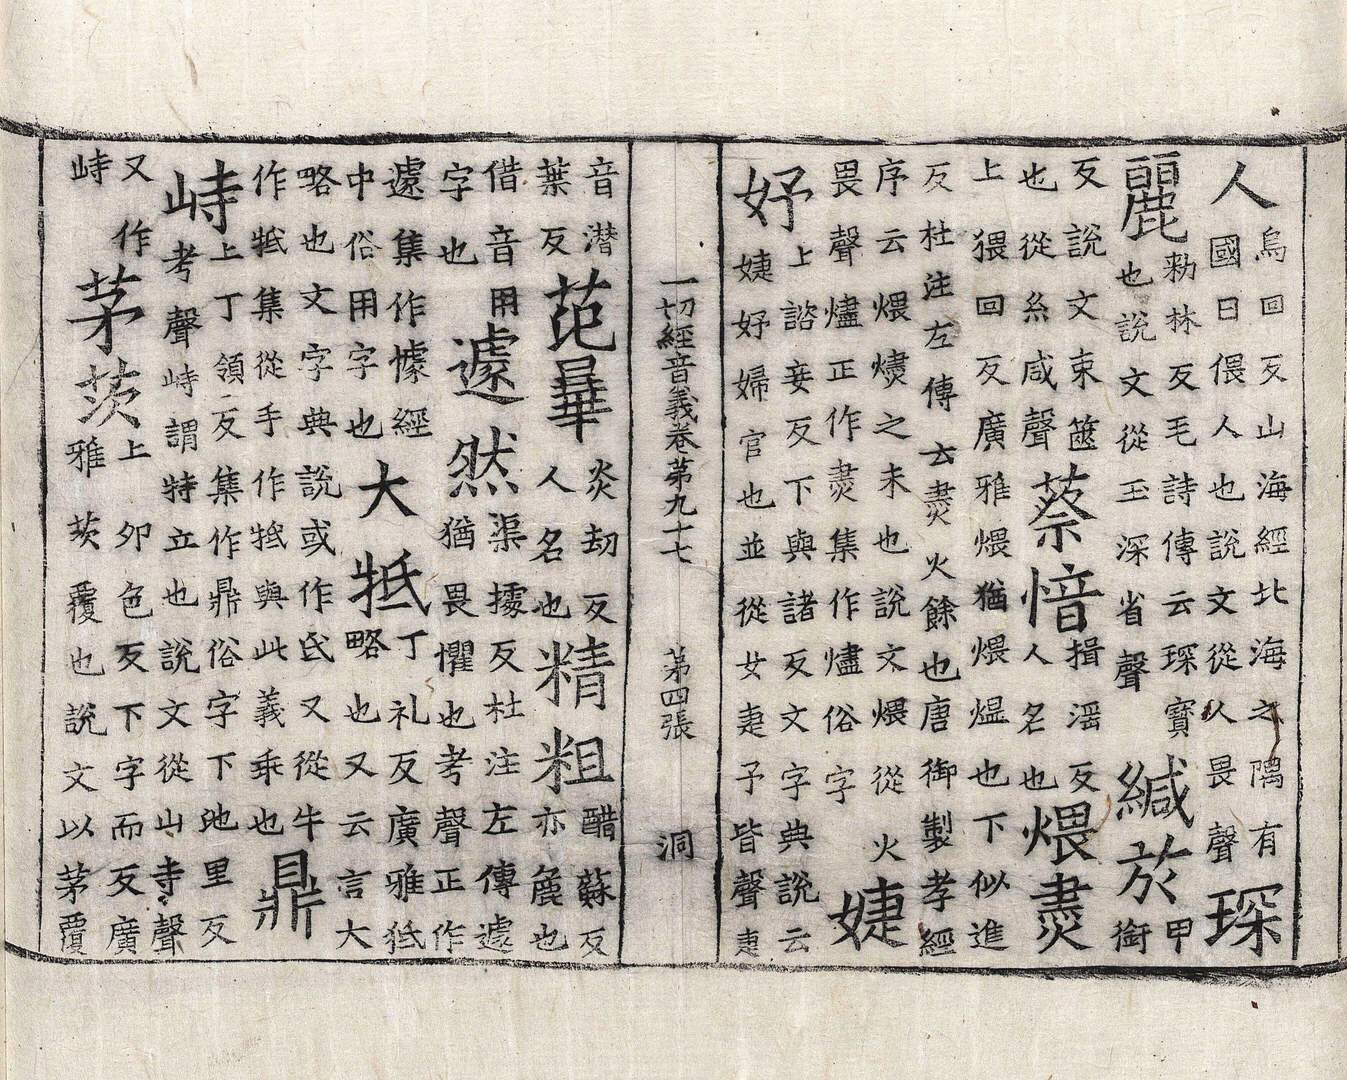 人烏回反山海經北海之隅有國曰偎人也說文從人畏聲琛
麗勑林反毛詩傳云琛寶也說文從玉深省聲緘於甲銜
反說文束篋也從糸咸聲蔡愔揖淫反人名也煨㶳
上猥回反廣雅煨猶煨煴也下似進
反杜注左傳云㶳火餘也唐御製孝經
序云煨燼之未也說文煨從火畏聲燼正作㶳集作燼俗字婕
妤上諮妾反下與諸反文字典說云婕妤婦官也並從女疌予皆聲疌
一切經音義卷第九十七 第四張 洞
音潛葉反范曅炎劫反人名也精粗醋蘇反亦麁也
借音用字也遽然渠據反杜注左傳遽猶畏懼也考聲正作
遽集作懅經中俗用字也大牴丁礼反廣雅牴略也又云言大
略也文字典說或作氐又從牛作牴集從手作牴與此義乖也鼎
峙上丁領反集作鼎俗字下池里反考聲峙謂特立也說文從山寺聲
又作峙茅茨上卯色反下字而反廣雅茨覆也說文以茅覆